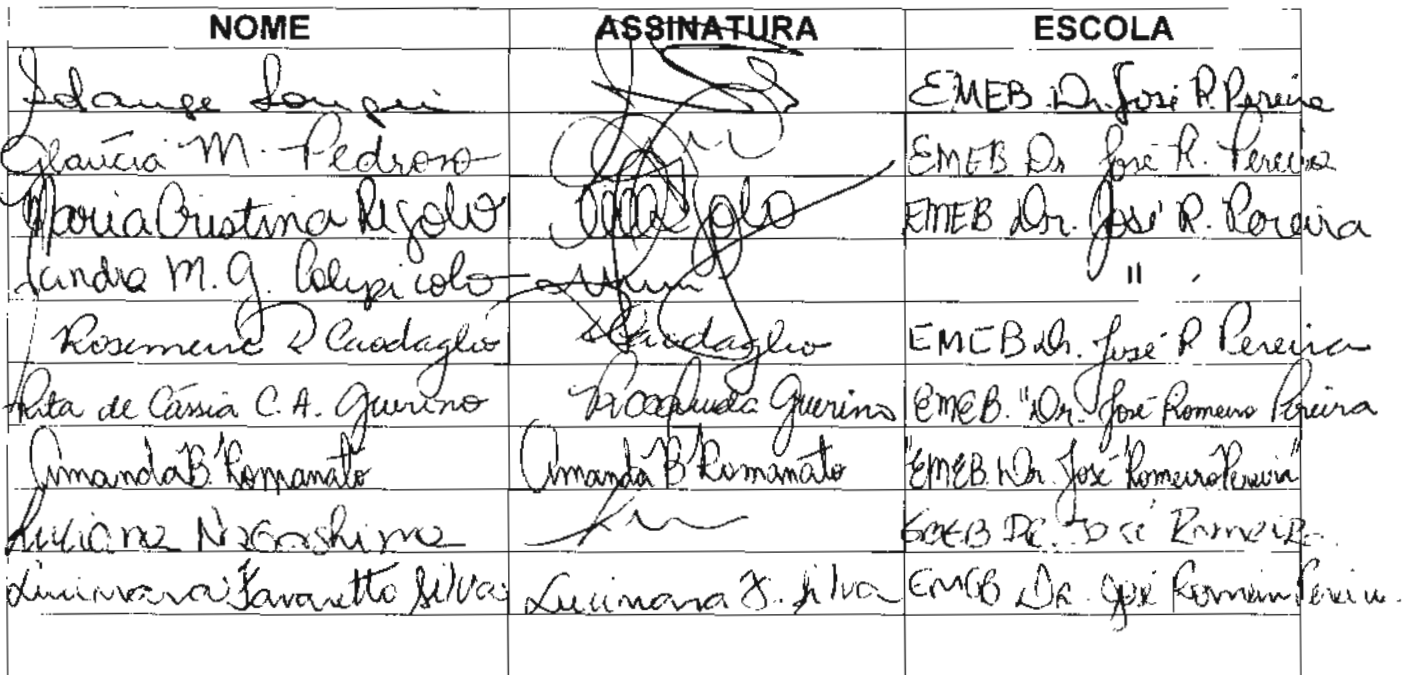 NOME ASSINATURA ESCOLA
Solange EMEB Dr. José R. Pereira
Glaúcia M. Pedroso EMEB Dr José R. Pereira
Maria Cristina Rigolo EMEB Dr. José R. Pereira
Sandra M. G. "
Rosemeire Caodaglio Caodaglio EMEB Dr. José R Pereira
Rita de Cássia C. A. Guerino Guerino EMEB. "Dr. José Romeiro Pereira
Amanda B. Romanato Amanda B Romanato "EMEB. Dr. José Romeiro Pereira"
Luciana Nagashima EMEB Dr. José Romeiro
Lucimara Favaretto Silva Lucimara F. Silva EMEB Dr. José Romeiro Pereira.